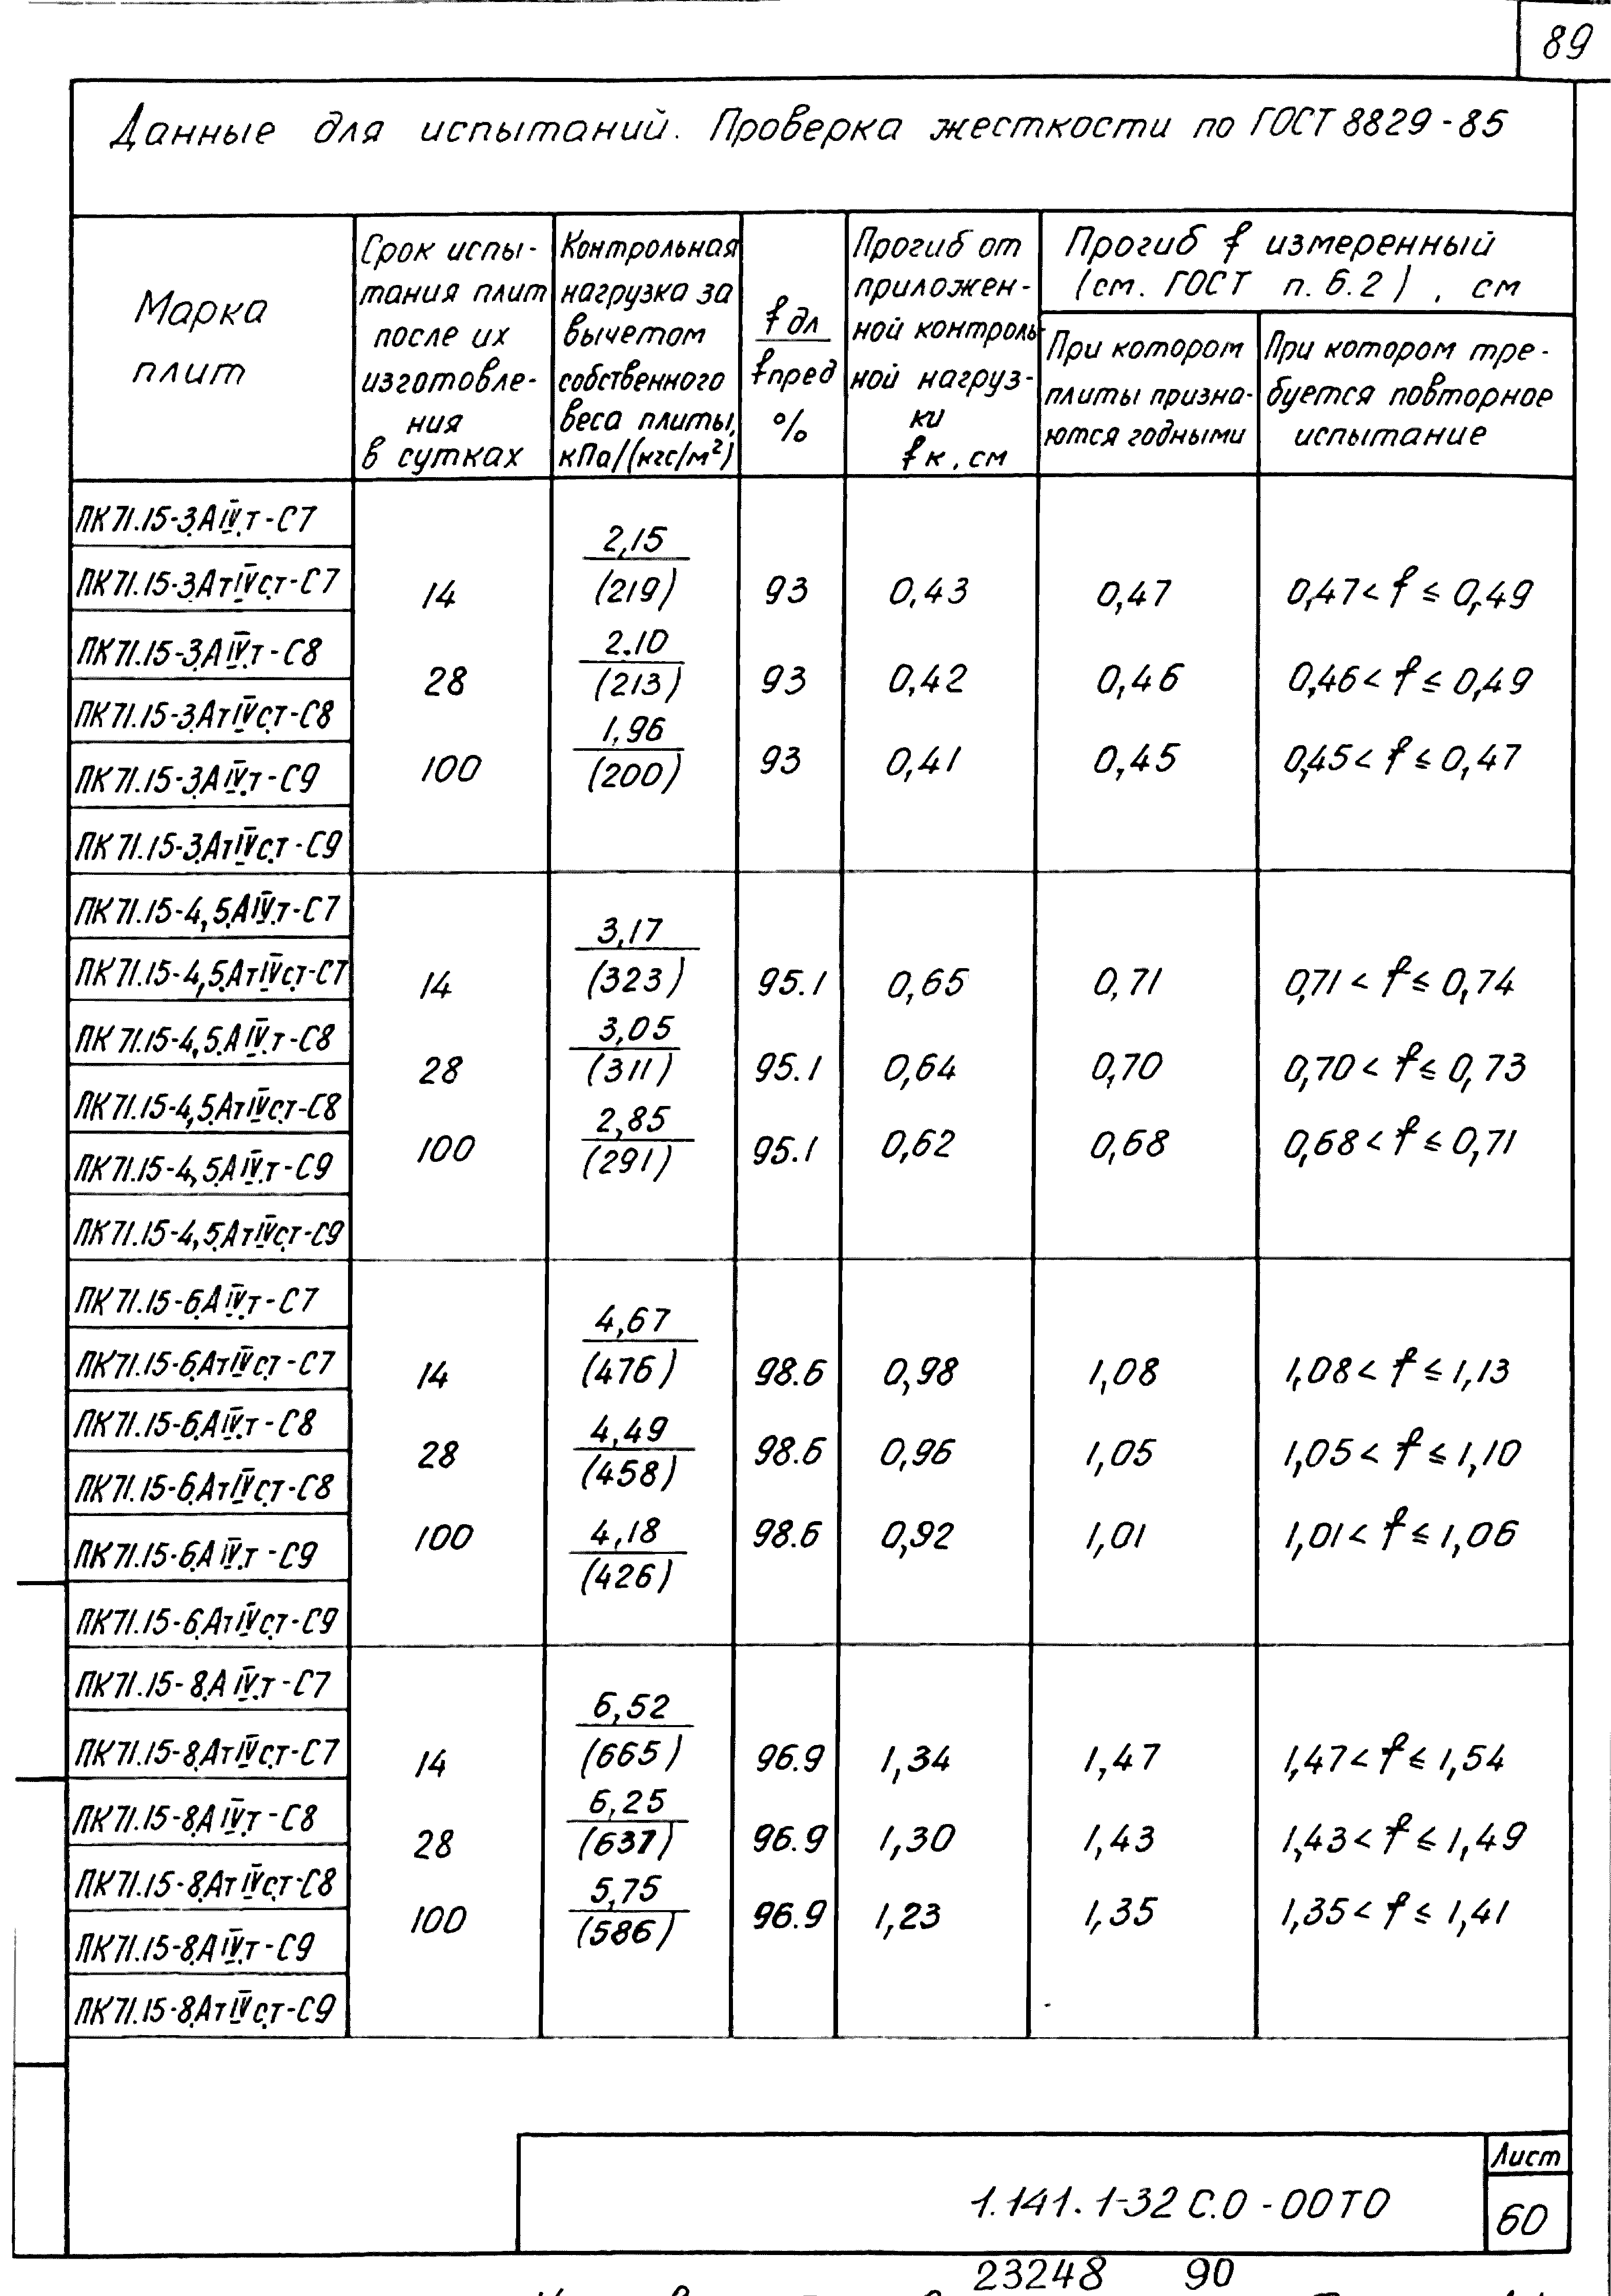 89
Данные для испытаний. Проверка жесткости по ГОСТ 8829-85
Марка плит
Срок испы-
тания плит
после их
изготовле-
ния
в сутках
Контрольная
нагрузка за
вычетом
собственного
веса плиты,
кПа/(кгс/м²)
f дл
f пред
%
Прогиб от
приложен-
ной контроль
ной нагруз-
ки
f к, см
Прогиб f измеренный
(см. ГОСТ п. 6.2), см
При котором
плиты призна-
ются годными
При котором тре-
буется повторное
испытание
ПК 71.15-3.АIV.т-С7
ПК 71.15-3.АтIVс.т-С7
ПК 71.15-3.АIV.т-С8
ПК 71.15-3.АтIVс.т-С8
ПК 71.15-3.АIV.т-С9
ПК 71.15-3.АтIVс.т-С9
14 2,15/(219) 93 0,43 0,47 0,47 < f ≤ 0,49
28 2.10/(213) 93 0,42 0,46 0,46 < f ≤ 0,49
100 1,96/(200) 93 0,41 0,45 0,45 < f ≤ 0,47
ПК 71.15-4,5.АIV.т-С7
ПК 71.15-4,5.АтIVс.т-С7
ПК 71.15-4,5.АIV.т-С8
ПК 71.15-4,5.АтIVс.т-С8
ПК 71.15-4,5.АIV.т-С9
ПК 71.15-4,5.АтIVс.т-С9
14 3,17/(323) 95.1 0,65 0,71 0,71 < f ≤ 0,74
28 3,05/(311) 95.1 0,64 0,70 0,70 < f ≤ 0,73
100 2,85/(291) 95.1 0,62 0,68 0,68 < f ≤ 0,71
ПК 71.15-6.АIV.т-С7
ПК 71.15-6.АтIVс.т-С7
ПК 71.15-6.АIV.т-С8
ПК 71.15-6.АтIVс.т-С8
ПК 71.15-6.АIV.т-С9
ПК 71.15-6.АтIVс.т-С9
14 4,67/(476) 98.6 0,98 1,08 1,08 < f ≤ 1,13
28 4,49/(458) 98.6 0,96 1,05 1,05 < f ≤ 1,10
100 4,18/(426) 98.6 0,92 1,01 1,01 < f ≤ 1,06
ПК 71.15-8.АIV.т-С7
ПК 71.15-8.АтIVс.т-С7
ПК 71.15-8.АIV.т-С8
ПК 71.15-8.АтIVс.т-С8
ПК 71.15-8.АIV.т-С9
ПК 71.15-8.АтIVс.т-С9
14 6,52/(665) 96.9 1,34 1,47 1,47 < f ≤ 1,54
28 6,25/(637) 96.9 1,30 1,43 1,43 < f ≤ 1,49
100 5,75/(586) 96.9 1,23 1,35 1,35 < f ≤ 1,41
1.141.1-32 С.0 -00Т0
Лист
60
23248 90